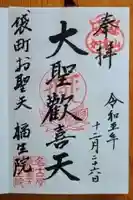 奉拝
令和五年
十二月二十六日
大聖歓喜天
袋町お聖天
福生院